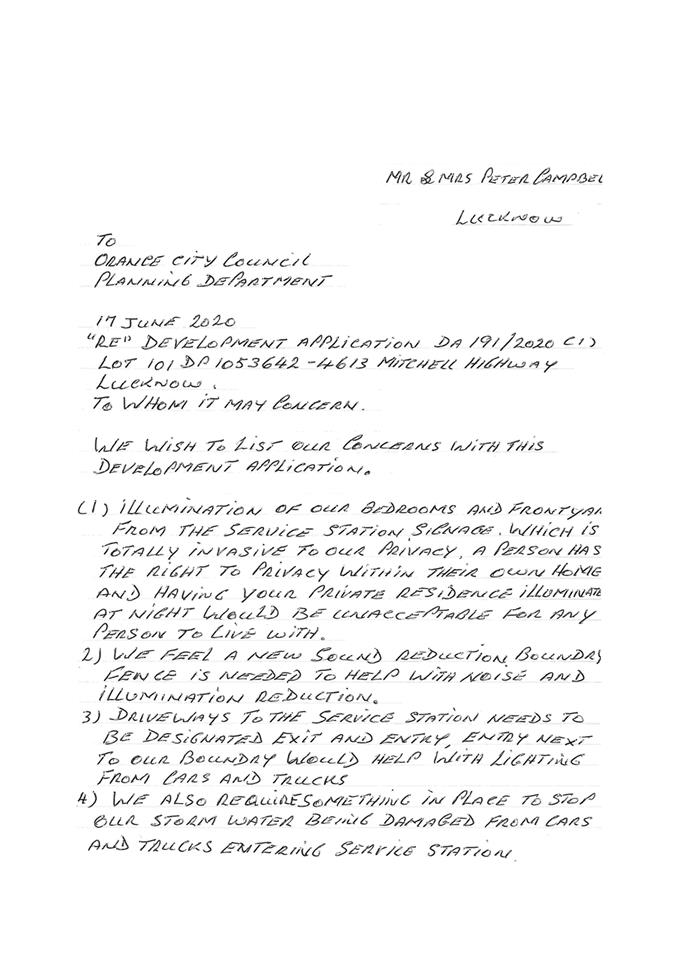 MR & MRS PETER CAMPBEL
LUCKNOW
TO
ORANGE CITY COUNCIL
PLANNING DEPARTMENT
17 JUNE 2020
"RE" DEVELOPMENT APPLICATION DA 191/2020 (1)
LOT 101 DP 1053642 - 4613 MITCHELL HIGHWAY
LUCKNOW.
TO WHOM IT MAY CONCERN.
WE WISH TO LIST OUR CONCERNS WITH THIS
DEVELOPMENT APPLICATION.
(1) ILLUMINATION OF OUR BEDROOMS AND FRONTYAR
FROM THE SERVICE STATION SIGNAGE. WHICH IS
TOTALLY INVASIVE TO OUR PRIVACY, A PERSON HAS
THE RIGHT TO PRIVACY WITHIN THEIR OWN HOME
AND HAVING YOUR PRIVATE RESIDENCE ILLUMINATE
AT NIGHT WOULD BE UNACCEPTABLE FOR ANY
PERSON TO LIVE WITH.
2) WE FEEL A NEW SOUND REDUCTION BOUNDRY
FENCE IS NEEDED TO HELP WITH NOISE AND
ILLUMINATION REDUCTION.
3) DRIVEWAYS TO THE SERVICE STATION NEEDS TO
BE DESIGNATED EXIT AND ENTRY, ENTRY NEXT
TO OUR BOUNDRY WOULD HELP WITH LIGHTING
FROM CARS AND TRUCKS
4) WE ALSO REQUIRE SOMETHING IN PLACE TO STOP
OUR STORM WATER BEING DAMAGED FROM CARS
AND TRUCKS ENTERING SERVICE STATION.